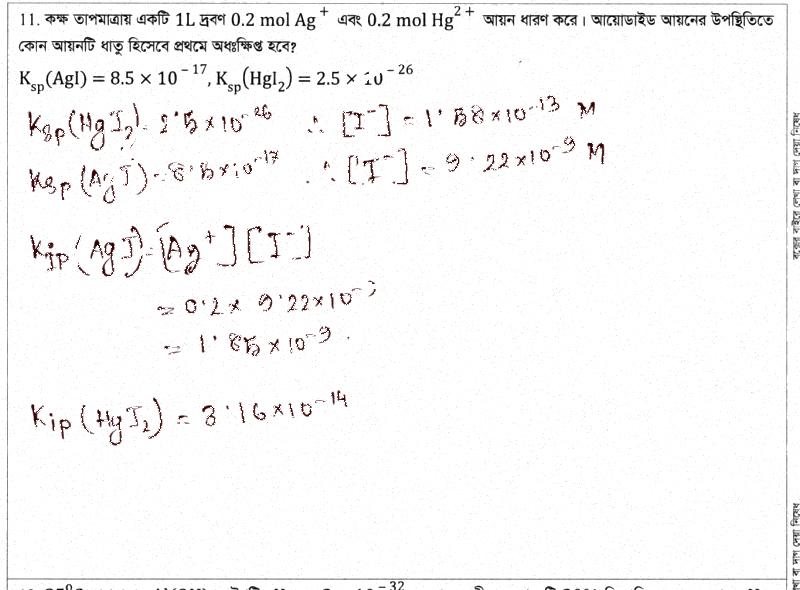 11. কক্ষ তাপমাত্রায় একটি 1L দ্রবণ 0.2 mol Ag⁺ এবং 0.2 mol Hg²⁺ আয়ন ধারণ করে। আয়োডাইড আয়নের উপস্থিতিতে
কোন আয়নটি ধাতু হিসেবে প্রথমে অধঃক্ষিপ্ত হবে?
K_sp(AgI) = 8.5 × 10⁻¹⁷, K_sp(HgI₂) = 2.5 × 10⁻²⁶
K_sp(HgI₂) = 2.5 × 10⁻²⁶ ∴ [I⁻] = 1.58×10⁻¹³ M
K_sp(AgI) = 8.5×10⁻¹⁷ ∴ [I⁻] = 9.22×10⁻⁹ M
K_ip(AgI) = [Ag⁺][I⁻]
= 0.2 × 9.22×10⁻⁹
= 1.85 × 10⁻⁹.
K_ip(HgI₂) = 3.16×10⁻¹⁴
বক্সের বাইরে লেখা বা দাগ দেয়া নিষেধ
লেখা বা দাগ দেয়া নিষেধ